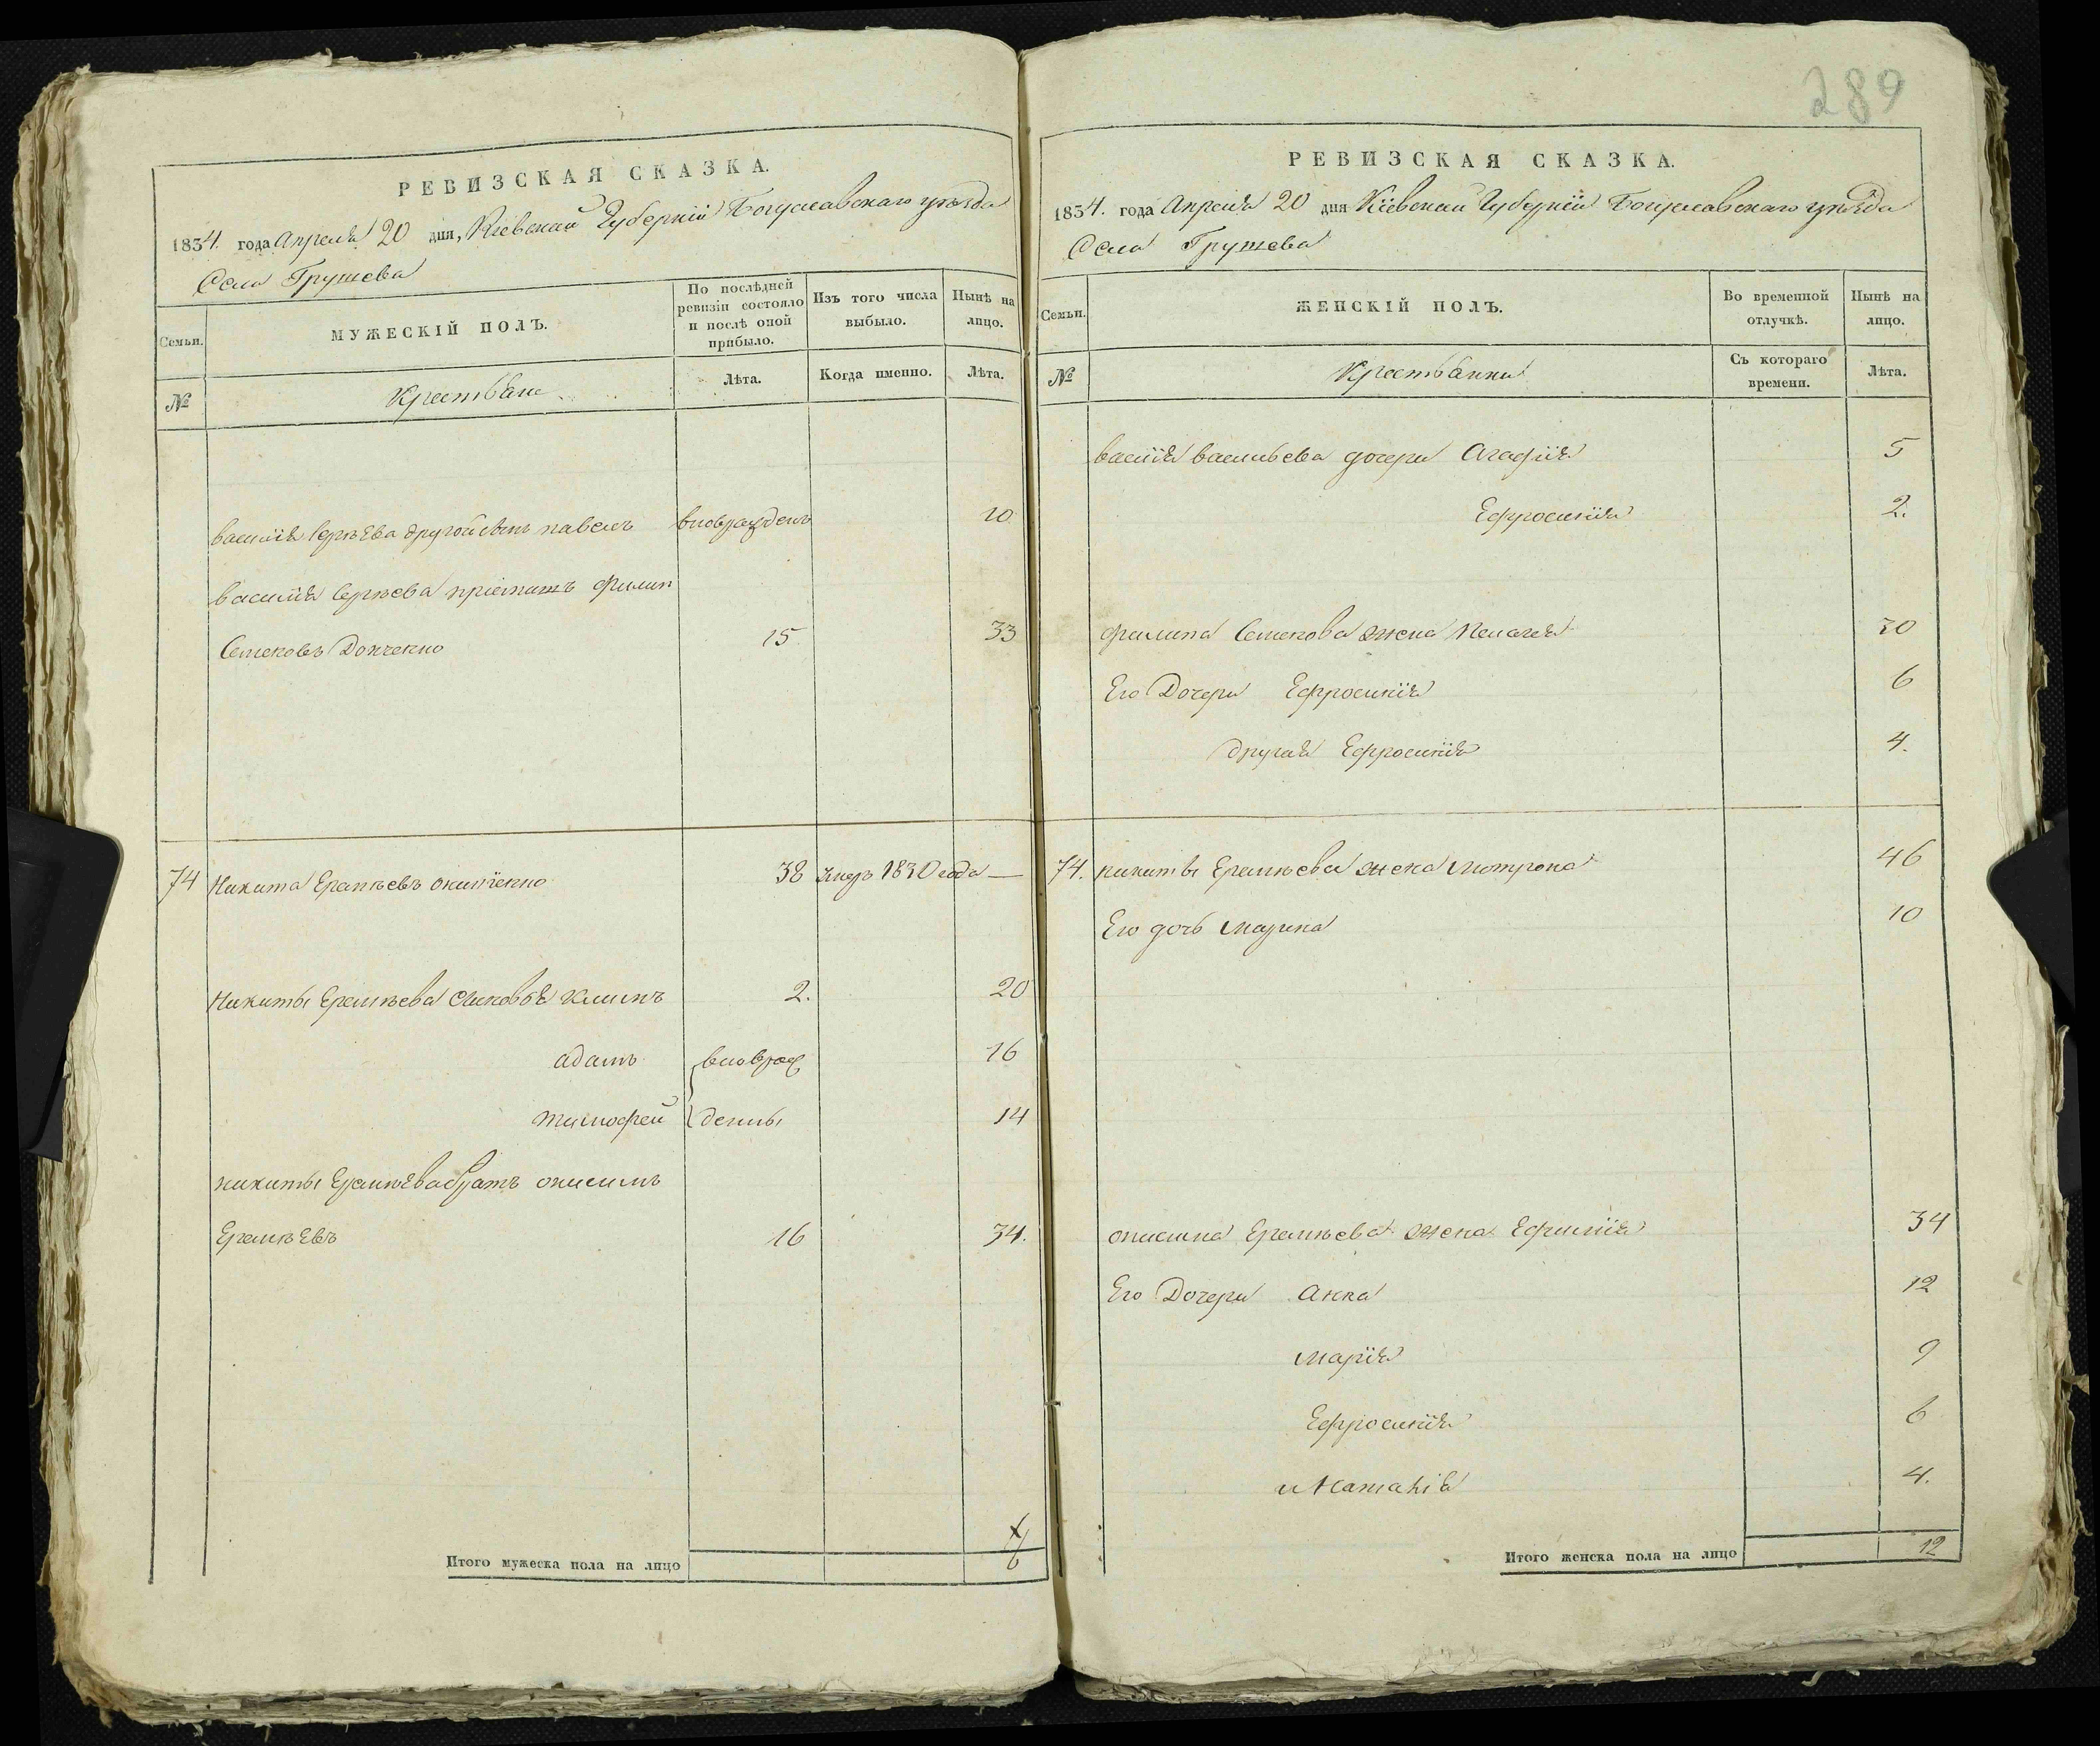 289
РЕВИЗСКАЯ СКАЗКА.
1834. года Апреля 20 дня, Кіевской Губерніи Богуславскаго уѣзда
Села Грушева
Семьи.
МУЖЕСКІЙ ПОЛЪ.
По послѣдней
ревизіи состояло
и послѣ оной
прибыло.
Изъ того числа
выбыло.
Нынѣ на
лицо.
№
Крестьяне
Лѣта.
Когда именно.
Лѣта.
василія Сергѣева другой сынъ павелъ вновьрожденъ 10
василія Сергѣева пріемышъ Филип
Семеновъ Донченко 15 33
74 Никита Еремѣевъ онищенко 38 умеръ 1830 года —
Никиты Еремѣева сыновья климъ 2. 20
адамъ вновьрож 16
тимофей денны 14
никиты Еремѣева братъ онисимъ
Еремѣевъ 16 34.
Итого мужеска пола на лицо 6
РЕВИЗСКАЯ СКАЗКА.
1834. года Апреля 20 дня Кіевской Губерніи Богуславскаго уѣзда
Села Грушева
Семьи.
ЖЕНСКІЙ ПОЛЪ.
Во временной
отлучкѣ.
Нынѣ на
лицо.
№
Крестьянки
Съ котораго
времени.
Лѣта.
василія васильева дочери Агафія 5
Ефросинія 2.
филипа Семенова жена Пелагея 30
Его Дочери Ефросинія 6
другая Ефросинія 4.
74. никиты Еремѣева жена мотрона 46
Его дочь марина 10
онисима Еремѣева жена Ефимія 34
Его Дочери Анна 12
марія 9
Ефросинія 6
и Наталія 4.
Итого женска пола на лицо 12